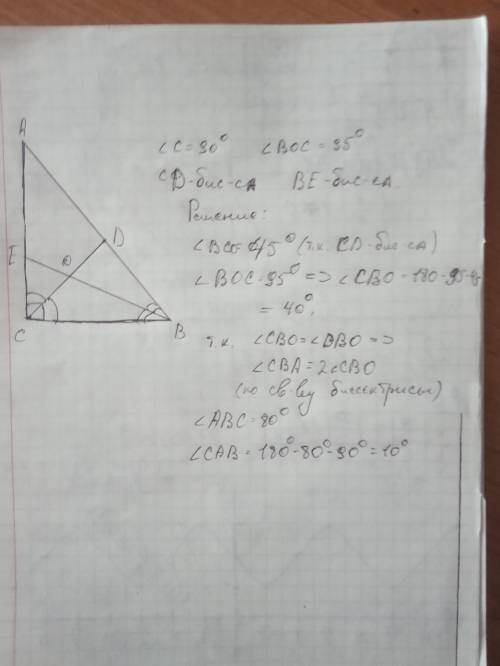 A
∠C=90° ∠BOC=95°
CD-бис-са BE-бис-са
Решение:
D
∠BCO=45° (т.к. CD-бис-са)
E
O
∠BOC=95° => ∠CBO=180-95-45
= 40°,
C
B
т.к. ∠CBO=∠DBO =>
∠CBA=2∠CBO
(по св-ву биссектрисы)
∠ABC=80°
∠CAB=180°-80°-90°=10°